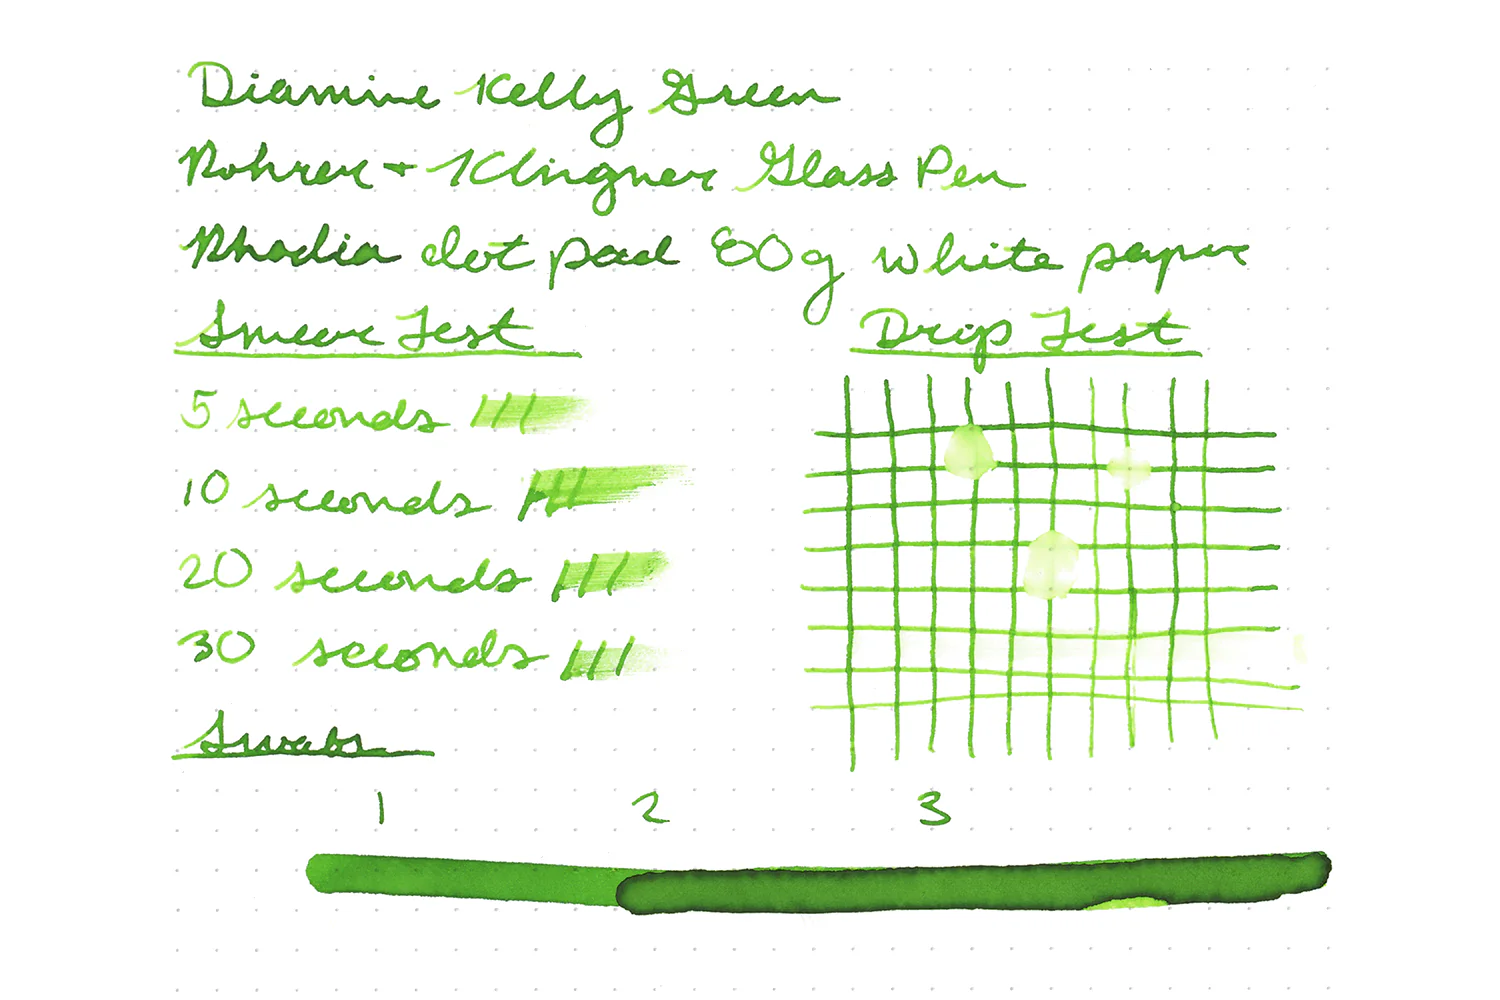 Diamine Kelly Green
Rohrer + Klingner Glass Pen
Rhodia dot pad 80g white paper
Smear Test
Drop Test
5 seconds
10 seconds
20 seconds
30 seconds
Swabs
1 2 3